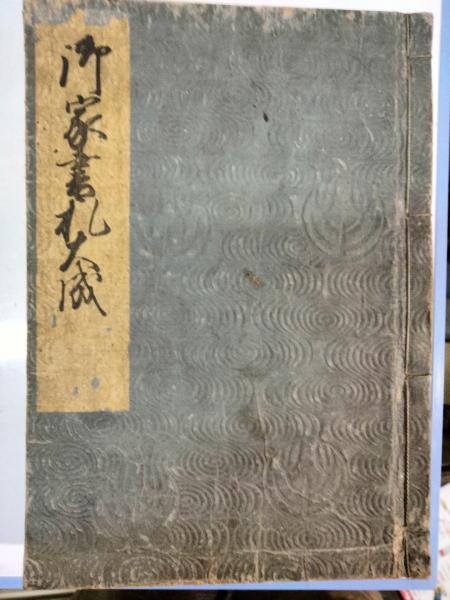 御家書札大成